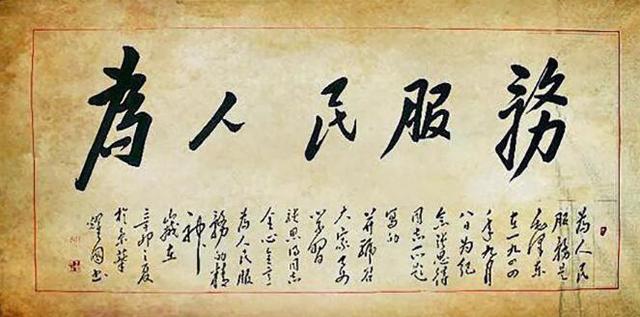 為人民服務
為人民
服務是
毛澤東
在一九四
四年九月
八日為紀
念張思得
同志所題
寫的
并號召
大家要
學習
張思得同志
全心全意
為人民服
務的精
神
歲在
辛卯之夏
於京華
國書